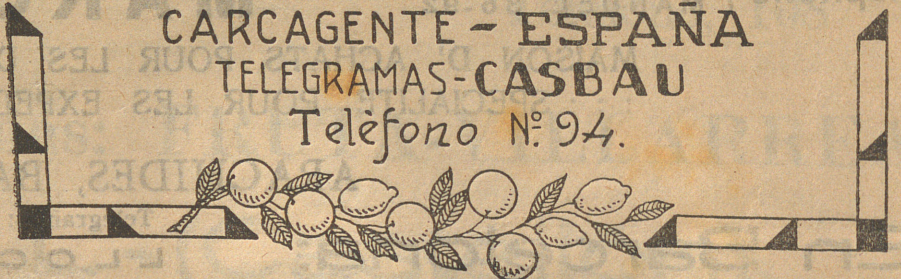 CARCAGENTE - ESPAÑA
TELEGRAMAS-CASBAU
Telèfono Nº 94.